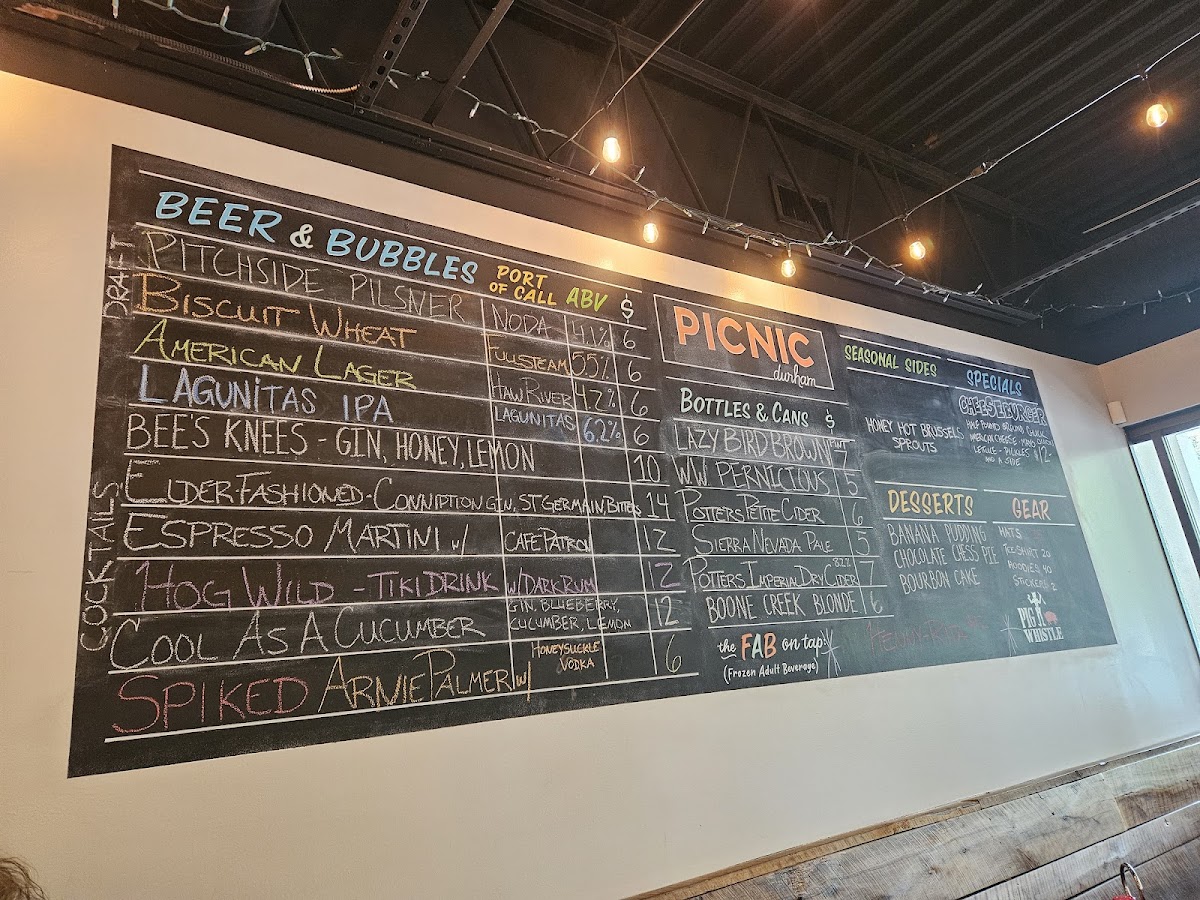 BEER & BUBBLES PORT OF CALL ABV $
DRAFT
PITCHSIDE PILSNER NODA 4.1% 6
BISCUIT WHEAT FULLSTEAM 5.5% 6
AMERICAN LAGER HAW RIVER 4.2% 6
LAGUNITAS IPA LAGUNITAS 6.2% 6
COCKTAILS
BEE'S KNEES - GIN, HONEY, LEMON 10
ELDERFASHIONED - CONNIPTION GIN, ST GERMAIN, BITTERS 14
ESPRESSO MARTINI W/ CAFE PATRON 12
HOG WILD - TIKI DRINK W/ DARK RUM 12
COOL AS A CUCUMBER GIN, BLUEBERRY, CUCUMBER, LEMON 12
SPIKED ARNIE PALMER W/ HONEYSUCKLE VODKA 6
PICNIC
durham
BOTTLES & CANS $
LAZY BIRD BROWN
WW PERNICIOUS 5
POTTERS PETITE CIDER 6
SIERRA NEVADA PALE 5
POTTERS IMPERIAL DRY CIDER 8.2% 7
BOONE CREEK BLONDE 6
the FAB on tap!
(Frozen Adult Beverage)
SEASONAL SIDES
HONEY HOT BRUSSELS
SPROUTS
SPECIALS
CHEESEBURGER
HALF POUND GROUND CHUCK
AMERICAN CHEESE MAYO
LETTUCE - PICKLES
AND A SIDE $12-
DESSERTS
BANANA PUDDING
CHOCOLATE CHESS PIE
BOURBON CAKE
GEAR
HATS
TEE SHIRT 20
HOODIES 40
STICKERS 2
PIG WHISTLE